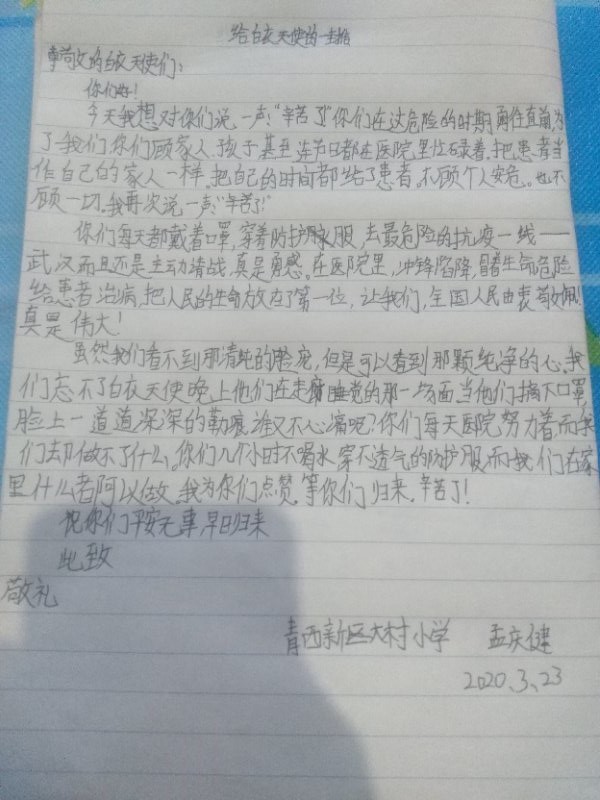 给白衣天使的一封信
尊敬的白衣天使们:
你们好!
今天我想对你们说一声:“辛苦了!”你们在这危险的时期,勇往直前,为
了我们你们顾家人、孩子甚至连节日都在医院里忙碌着,把患者当
作自己的家人一样,把自己的时间都给了患者。不顾个人安危。也不
顾一切。我再次说一声:“辛苦了!”
你们每天都戴着口罩,穿着防护服,去最危险的抗疫一线——
武汉而且还是主动请战,真是勇感,在医院里,冲锋陷降,冒着生命危险
给患者治病,把人民的生命放在了第一位,让我们,全国人民由衷敬佩!
真是伟大!
虽然我们看不到那清纯的脸庞,但是可以看到那颗纯净的心,我
们忘不了白衣天使晚上他们在走廊睡觉的那一场面,当他们摘下口罩,
脸上一道道深深的勒痕,谁又不心痛呢?你们每天医院努力着而我
们去却做不了什么。你们几个小时不喝水,穿不透气的防护服,而我们在家
里什么都可以做。我为你们点赞。等你们归来。辛苦了!
祝你们平安无事,早日归来
此致
敬礼
青西新区大村小学 孟庆健
2020.3.23